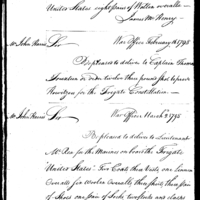 United States eight pair of Woolen overalls—
James McHenry
Mr John Harris Sir War Office February 16th 1798
Be pleased to deliver to Captain Thomas
or order twelve three pound shot to prove
for the Frigate Constitution—
Mr John Harris Sir War Office March 2 1798
Be pleased to deliver to Lieutenant
McRea for the Marines on board the Frigate
"United States" Two Coats, two Vests, one Linnen
Overalls, two Woolen Overalls, two Shirts, three pair
of Shoes, one pair of Socks, two Stocks and clasps